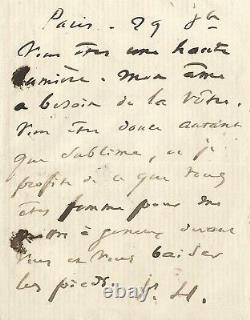 Paris - 29 8bre
Vous êtes une haute
lumière. Mon âme
a besoin de la vôtre.
Vous êtes douce autant
que sublime, et je
profite de ce que vous
êtes femme pour me
mettre à genoux devant
vous et vous baiser
les pieds. V. H.